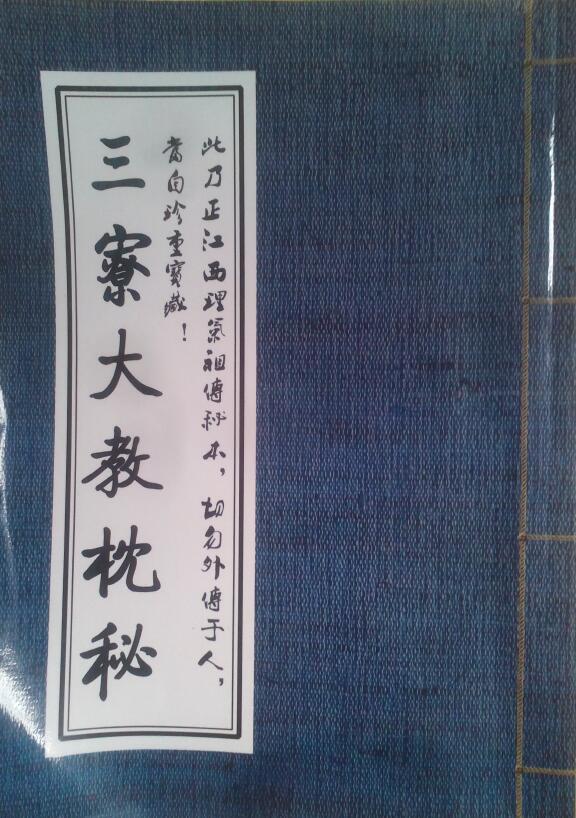 此乃正江西理氣祖傳秘本，切勿外傳于人，
當自珍重寶藏！
三寮大教枕秘